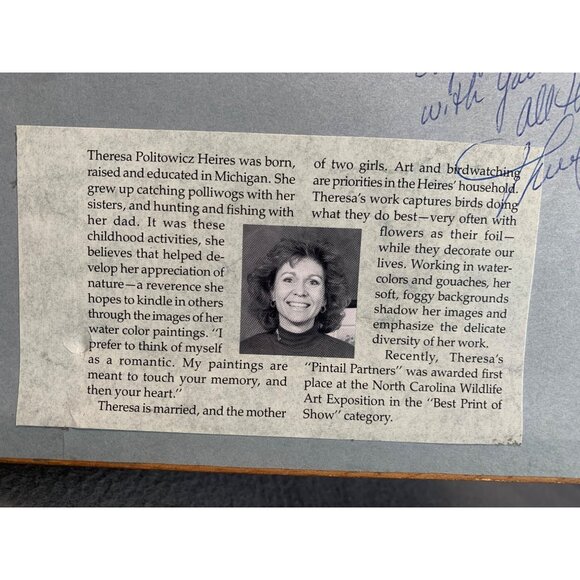 with you
all
Theresa Politowicz Heires was born,
raised and educated in Michigan. She
grew up catching polliwogs with her
sisters, and hunting and fishing with
her dad. It was these
childhood activities, she
believes that helped de-
velop her appreciation of
nature—a reverence she
hopes to kindle in others
through the images of her
water color paintings. "I
prefer to think of myself
as a romantic. My paintings are
meant to touch your memory, and
then your heart."
Theresa is married, and the mother
of two girls. Art and birdwatching
are priorities in the Heires' household.
Theresa's work captures birds doing
what they do best—very often with
flowers as their foil—
while they decorate our
lives. Working in water-
colors and gouaches, her
soft, foggy backgrounds
shadow her images and
emphasize the delicate
diversity of her work.
Recently, Theresa's
"Pintail Partners" was awarded first
place at the North Carolina Wildlife
Art Exposition in the "Best Print of
Show" category.